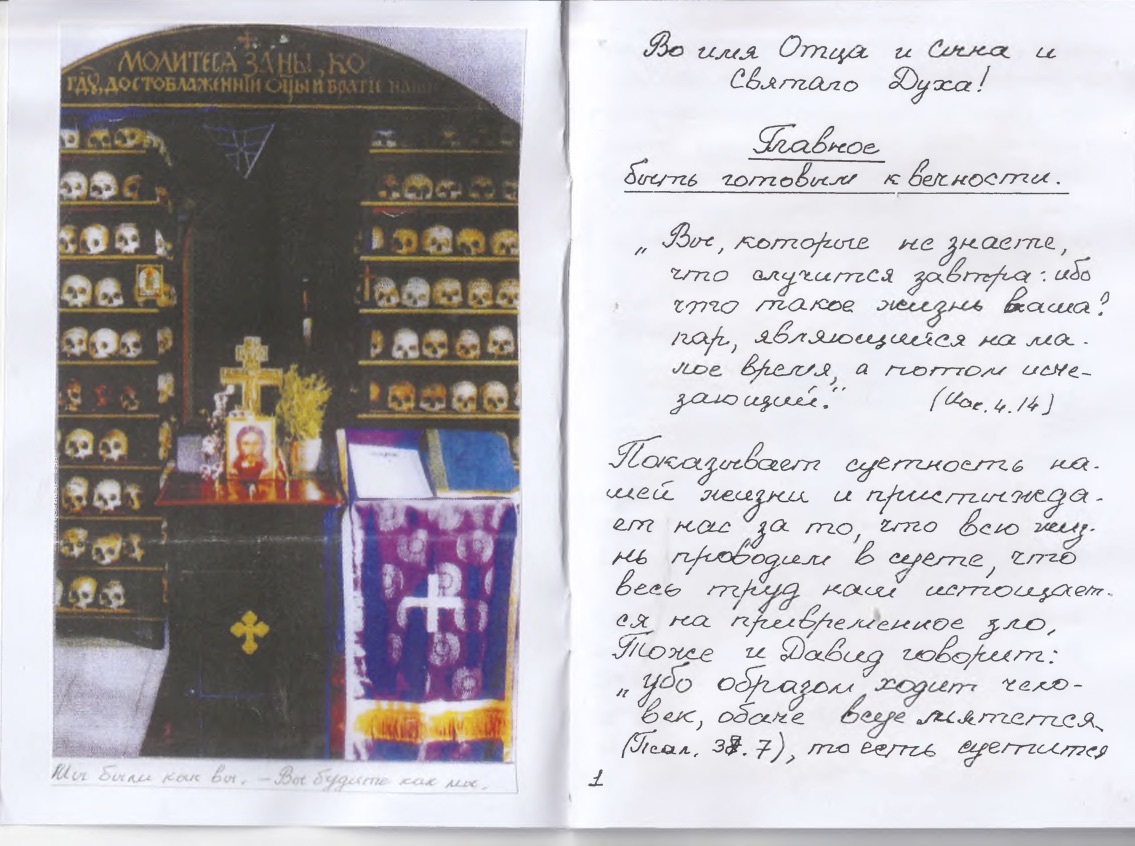 МОЛИТЕСѦ ЗА НЫ, КО
ГДУ, ДОСТОБЛАЖЕННІИ ОЦЫ И БРАТІЕ НАШИ
Мы были как вы. – Вы будите как мы.
Во имя Отца и Сына и
Святаго Духа!
Главное
быть готовым к вечности.
„ Вы, которые не знаете,
что случится завтра: ибо
что такое жизнь ваша?
пар, являющийся на ма-
лое время, а потом исче-
зающий.“ (Иос. 4.14)
Показывает суетность на-
шей жизни и пристыжда-
ет нас за то, что всю жиз-
нь проводим в суете, что
весь труд наш истощает-
ся на привременное зло,
Тоже и Давид говорит:
„ убо образом ходит чело-
век, обаче всуе мятется
(Псал. 38.7), то есть суетится
1